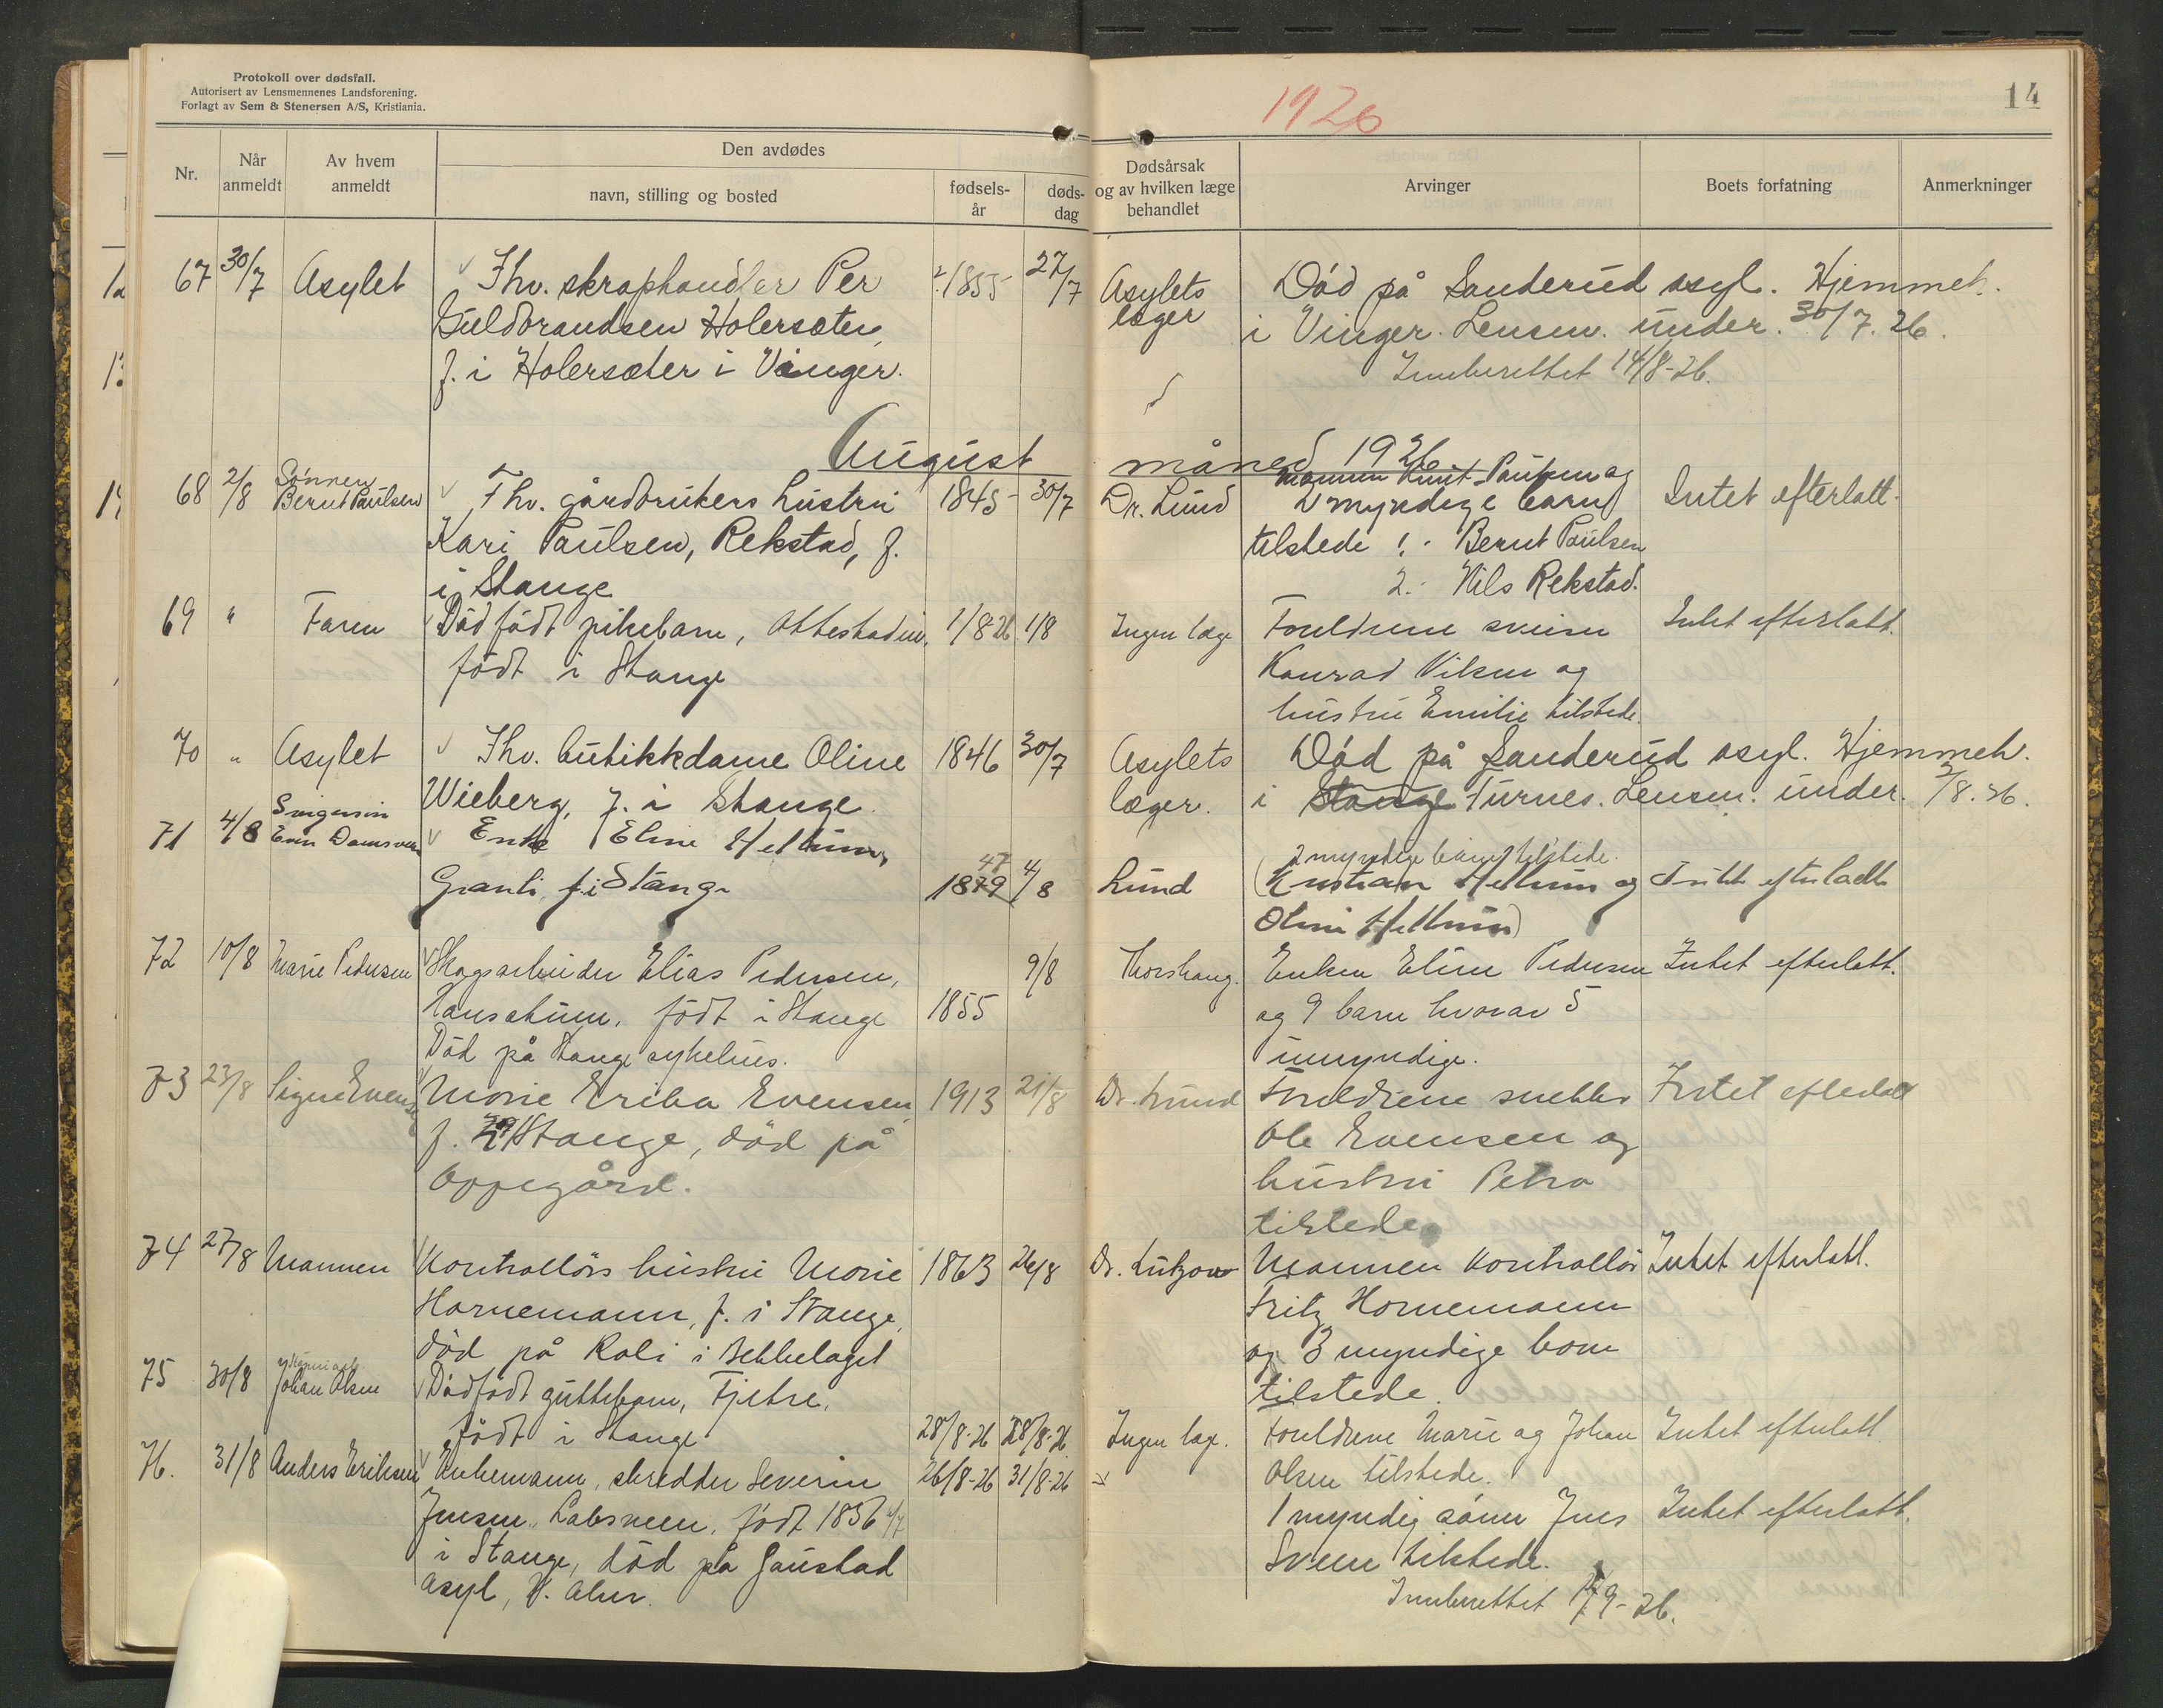 Protokoll over dødsfall.
Autorisert av Lensmennenes Landsforening.
Forlagt av Sem & Stenersen A/S, Kristiania.
1926
14
Nr.
Når anmeldt
Av hvem anmeldt
Den avdødes
navn, stilling og bosted
fødsels-år
døds-dag
Dødsårsak og av hvilken læge behandlet
Arvinger
Boets forfatning
Anmerkninger
67 30/7 Asylet Fhv. skraphandler Per 1855 27/7 Asylets Død på Sanderud asyl. Hjemmeh.
Guldbrandsen Holersæter, læger i Vinger. Lensm. under. 30/7. 26.
f. i Holersæter i Vinger. Innberettet 14/8-26.
August måned 1926
68 2/8 Sønnen Fhv. gårdbrukers hustru 1845 30/7 Dr. Lund mannen Knut Paulsen og Intet efterlatt.
Bernt Paulsen Kari Paulsen, Rekstad, f. 2 myndige barn
i Stange tilstede 1. Bernt Paulsen
2. Nils Rekstad.
69 " Faren Død født pikebarn, 1/8 26 1/8 Ingen læge Foreldrene Intet efterlatt.
født i Stange Konrad Vilsen og
hustru Emilie tilstede.
70 " Asylet Fhv. butikkdame Oline 1846 30/7 Asylets Død på Sanderud asyl. Hjemmeh.
Wieberg, f. i Stange. læger. i Stange Furnes. Lensm. under. 2/8. 26.
71 4/8 Enke Eline 2 myndige barn tilstede.
Granli f. i Stange 1879 47 4/8 Lund (Kristian og Intet efterladt
72 10/8 Marie Pedersen Skogsarbeider Elias Pedersen, 9/8 Thorshaug. Enken Eline Pedersen Intet efterlatt.
født i Stange 1855 og 9 barn hvorav 5
Død på Stange sykehus. umyndige.
73 23/8 Signe Evensen Marie Erika Evensen 1913 21/8 Dr. Lund Foreldrene snekker Intet efterlatt
f. Stange, død på Ole Evensen og
Oppegård. hustru Petra
tilstede
74 27/8 Mannen Kontrollørs hustru Marie 1863 26/8 Dr. Lützow Mannen kontrollør Intet efterlatt.
Hornemann, f. i Stange, Fritz Hornemann
død på Roli i Bekkelaget og 3 myndige barn
tilstede.
75 30/8 Johan Olsen Dødfødt guttebarn, Fjetre,
født i Stange 28/8-26 28/8-26 Ingen læge. Foreldrene Marie og Johan Intet efterlatt.
Olsen tilstede.
76. 31/8 Anders Eriksen Enkemann, skredder Severin 26/8-26 31/8-26
Jensen født 1856 1 myndig sønn Jens Intet efterlatt.
i Stange, død på Gaustad Sveen tilstede.
asyl, V. Aker. Innberettet 9-26.